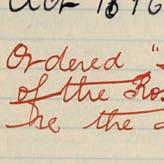 Oct 1896
Ordered "
of the Ro
he the